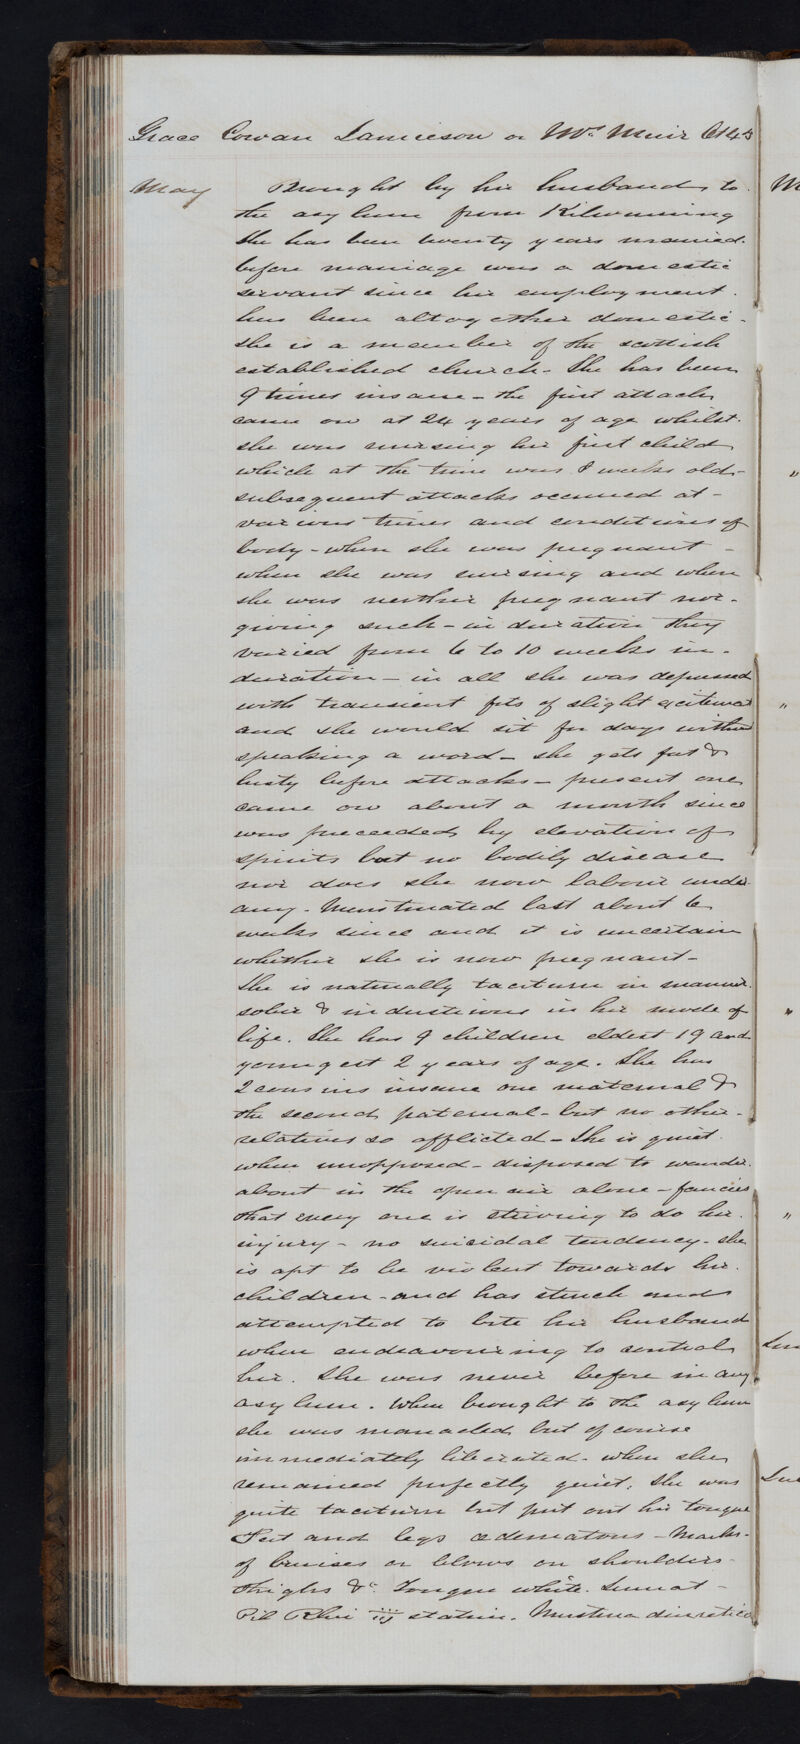 Grace Cowan Jamieson or Mrs Muir Æt 43
May Brought by her husband to
the asylum from Kilwinning
She has been twenty years married.
before marriage was a domestic
servant since her employment
has been altogether domestic -
She is a member of the scottish
established church - She has been
9 times insane - the first attack
came on at 24 years of age whilst
she was nursing her first child
which at the time was 8 weeks old -
subsequent attacks occurred at -
various times and conditions of
body - when she was pregnant -
when she was nursing and when
she was neither pregnant nor -
giving suck - in duration they
varied from 6 to 10 weeks in -
duration - in all she was depressed
with transient fits of slight excitement
and she would sit for days without
speaking a word - she gets fat &
lusty before attacks - present one
came on about a month since
was preceeded by elevation of
spirits but no bodily disease
nor does she now labour under
any. Menstruated last about 6
weeks since and it is uncertain
whether she is now pregnant -
She is naturally taciturn in manner
sober & industrious in her mode of
life. She has 9 children eldest 19 and
youngest 2 years of age. She has
2 cousins insane one maternal &
the second paternal - but no other -
relatives so afflicted - She is quiet
when unopposed - disposed to wander
about in the open air alone - fancies
that every one is striving to do her
injury - no suicidal tendency - she
is apt to be violent towards her
children - and has struck and
attempted to bite her husband
when endeavouring to control
her. She was never before in any
asylum. When brought to the asylum
she was manacled but of course
immediately liberated - when she
remained perfectly quiet. She was
quite taciturn but put out her tongue
Feet and legs œdematous - Marks -
of bruises or blows on shoulders -
thighs &c. Tongue white. Sumat -
Pil Rhei iij statim. Mustura diuretica